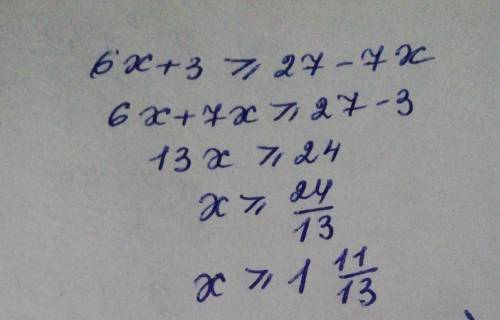 6x+3 ⩾ 27-7x
6x+7x ⩾ 27-3
13x ⩾ 24
x ⩾ 24/13
x ⩾ 1 11/13